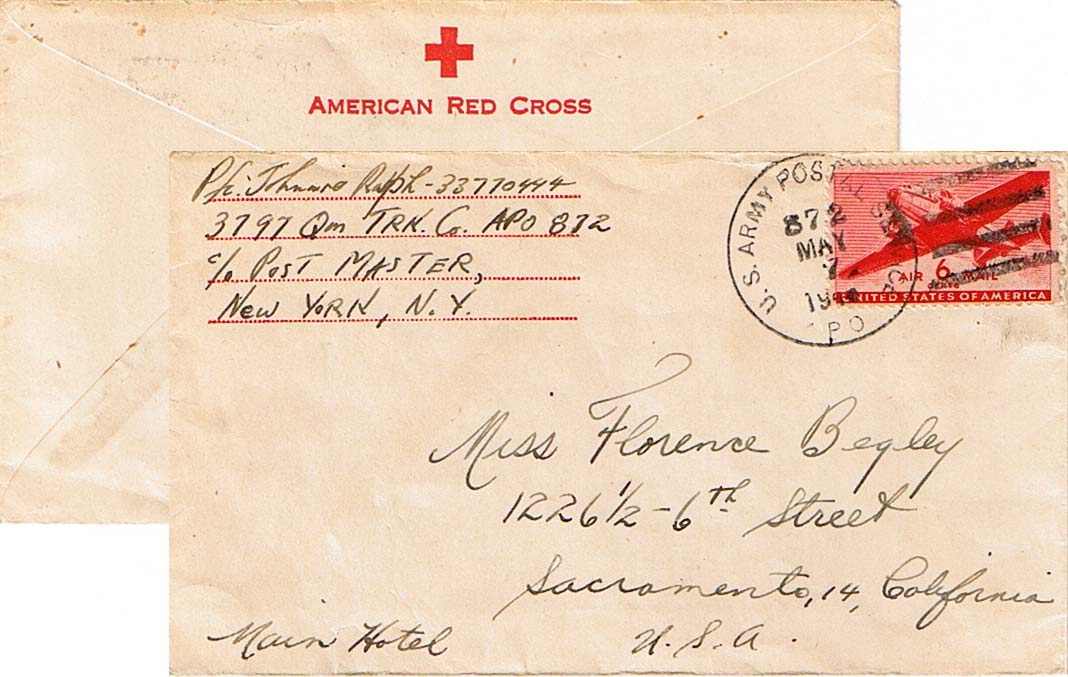 AMERICAN RED CROSS
Pfc. Johnnie Ralph - 33770444
3797 Qm TRK. Co. APO 872
c/o POST MASTER,
New YORK, N.Y.
U.S. ARMY POSTAL
872
MAY
7
AIR 6 MAIL
CENTS
UNITED STATES OF AMERICA
APO
Miss Florence Begley
1226 1/2 - 6th Street
Sacramento, 14, California
U.S.A.
Main Hotel